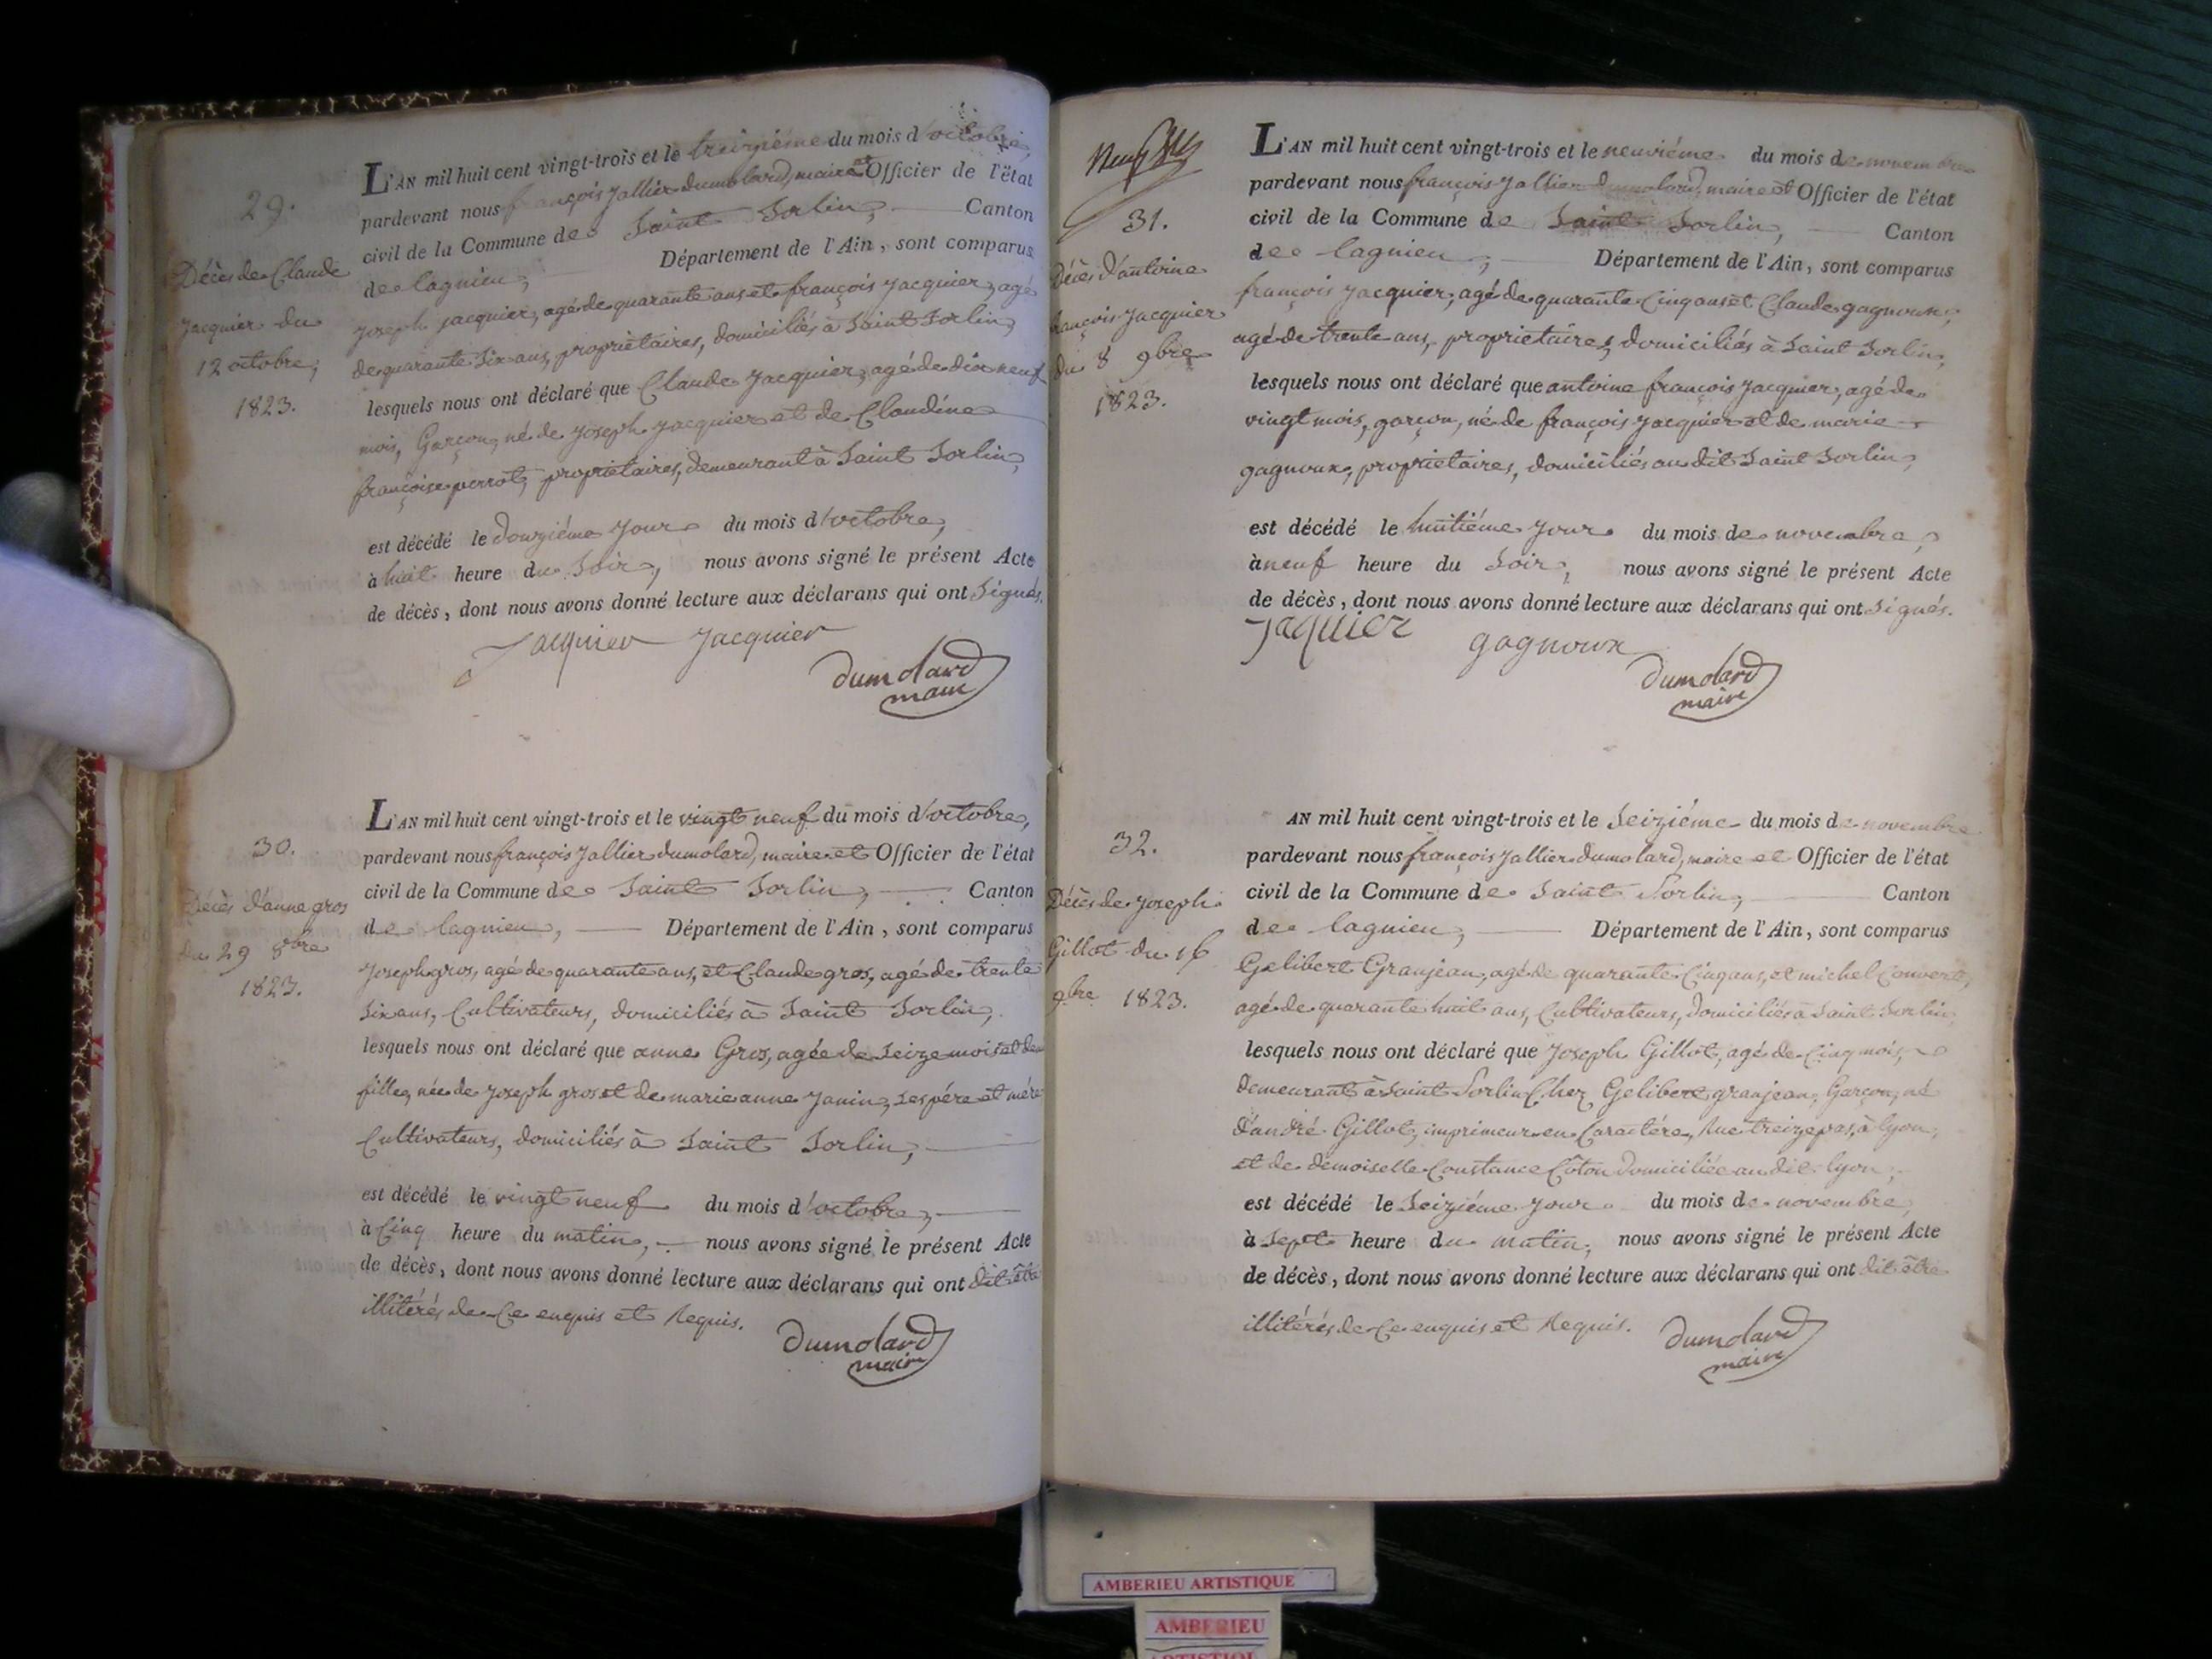 29.
Décès de Claude
Jacquier du
12 octobre,
1823.
L'AN mil huit cent vingt-trois et le treizième du mois d'octobre,
pardevant nous françois Jallier dumolard, maire et Officier de l'état
civil de la Commune de Saint Sorlin, Canton
de lagnieu, Département de l'Ain, sont comparus
joseph jacquier, agé de quarante ans et françois jacquier, agé
de quarante six ans, propriétaires, domiciliés à Saint Sorlin,
lesquels nous ont déclaré que Claude jacquier, agé de dix neuf
mois, Garçon, né de joseph jacquier et de Claudine
françoise perrot, propriétaires, demeurant à Saint Sorlin,
est décédé le douzième jour du mois d'octobre,
à huit heure du Soir, nous avons signé le présent Acte
de décès, dont nous avons donné lecture aux déclarans qui ont Signés.
Jacquier Jacquier
dumolard
maire
30.
Décès d'anne gros
du 29 8bre
1823.
L'AN mil huit cent vingt-trois et le vingt neuf du mois d'octobre,
pardevant nous françois Jallier dumolard, maire et Officier de l'état
civil de la Commune de Saint Sorlin, Canton
de lagnieu, Département de l'Ain, sont comparus
Joseph gros, agé de quarante ans, et Claude gros, agé de trente
Six ans, Cultivateurs, domiciliés à Saint Sorlin,
lesquels nous ont déclaré que anne Gros, agée de Seize mois et
fille, née de joseph gros et de marie anne Janin, ses pére et mére
Cultivateurs, domiciliés à Saint Sorlin,
est décédé le vingt neuf du mois d'octobre,
à Cinq heure du matin, nous avons signé le présent Acte
de décès, dont nous avons donné lecture aux déclarans qui ont dit être
illitérés de Ce enquis et Requis.
dumolard
maire
31.
Décès d'antoine
françois jacquier
du 8 9bre
1823.
L'AN mil huit cent vingt-trois et le neuvième du mois de novembre
pardevant nous françois Jallier dumolard, maire et Officier de l'état
civil de la Commune de Saint Sorlin, Canton
de lagnieu, Département de l'Ain, sont comparus
françois jacquier, agé de quarante Cinq ans et Claude gagnoux,
agé de trente ans, propriétaires, domiciliés à Saint Sorlin,
lesquels nous ont déclaré que antoine françois jacquier, agé de
vingt mois, garçon, né de françois jacquier et de marie
gagnoux, propriétaires, domiciliés au dit Saint Sorlin,
est décédé le huitiéme jour du mois de novembre,
à neuf heure du Soir, nous avons signé le présent Acte
de décès, dont nous avons donné lecture aux déclarans qui ont Signés.
jaquier gagnoux
dumolard
maire
32.
Décès de joseph
Gillot du 16
9bre 1823.
AN mil huit cent vingt-trois et le Seiziéme du mois de novembre
pardevant nous françois Jallier dumolard, maire et Officier de l'état
civil de la Commune de Saint Sorlin, Canton
de lagnieu, Département de l'Ain, sont comparus
Gelibert Granjean, agé de quarante Cinq ans, et michel Convert,
agé de quarante huit ans, Cultivateurs, domiciliés à Saint Sorlin,
lesquels nous ont déclaré que joseph Gillot, agé de Cinq mois,
demeurant à Saint Sorlin Chez Gelibert granjean, Garçon, né
d'andré Gillot, imprimeur en Caractére, Rue treize pas, à lyon,
et de demoiselle Constance Côton domiciliée au dit lyon,
est décédé le Seiziéme jour du mois de novembre,
à Sept heure du matin, nous avons signé le présent Acte
de décès, dont nous avons donné lecture aux déclarans qui ont dit être
illitérés de Ce enquis et Requis.
dumolard
maire
AMBERIEU ARTISTIQUE
AMBERIEU
ARTISTIQUE